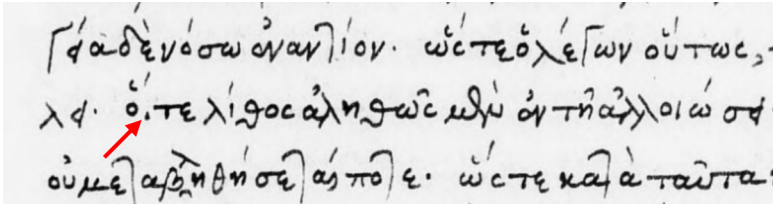 ἐναντίον. ὥστε ὁ λέγων οὕτως,
ὅ, τε λίθος ἀληθῶς μὲν ἐν τῇ ἀλλοιώσει
οὐ μεταβληθήσεταί ποτε. ὥστε κατὰ ταῦτα